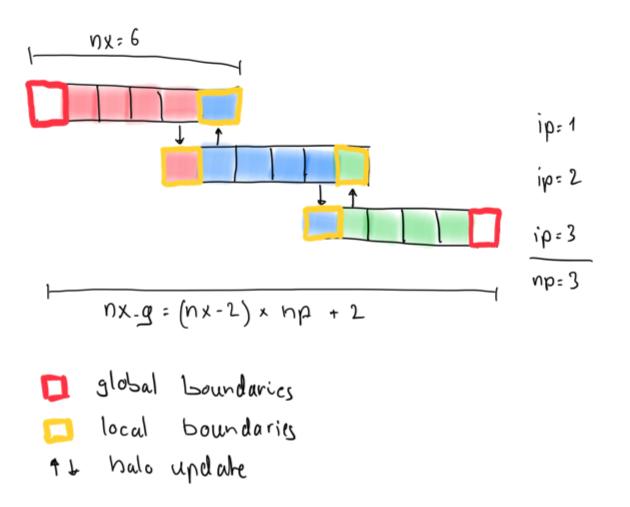 nx=6
ip=1
ip=2
ip=3
np=3
nx_g = (nx-2) × np + 2
global boundaries
local boundaries
↑↓ halo update